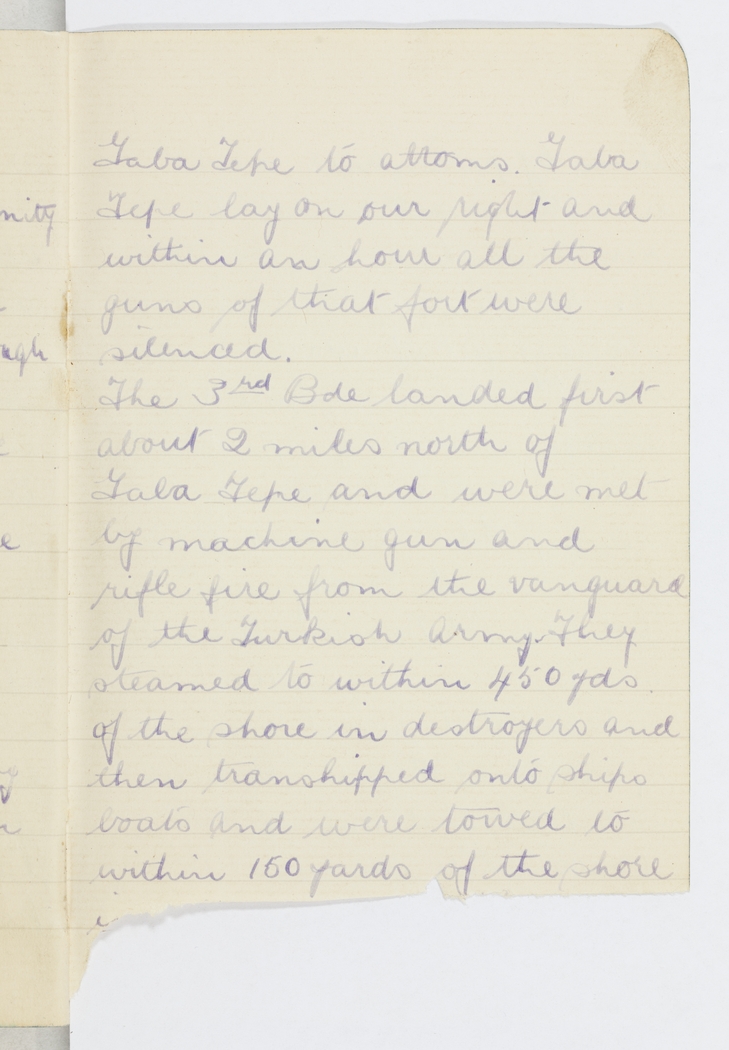 Gaba Tepe to attoms. Gaba
Tepe lay on our right and
within an hour all the
guns of that fort were
silenced.
The 3rd Bde landed first
about 2 miles north of
Gaba Tepe and were met
by machine gun and
rifle fire from the vanguard
of the Turkish Army. They
steamed to within 450 yds
of the shore in destroyers and
then transhipped onto ships
boats and were towed to
within 150 yards of the shore